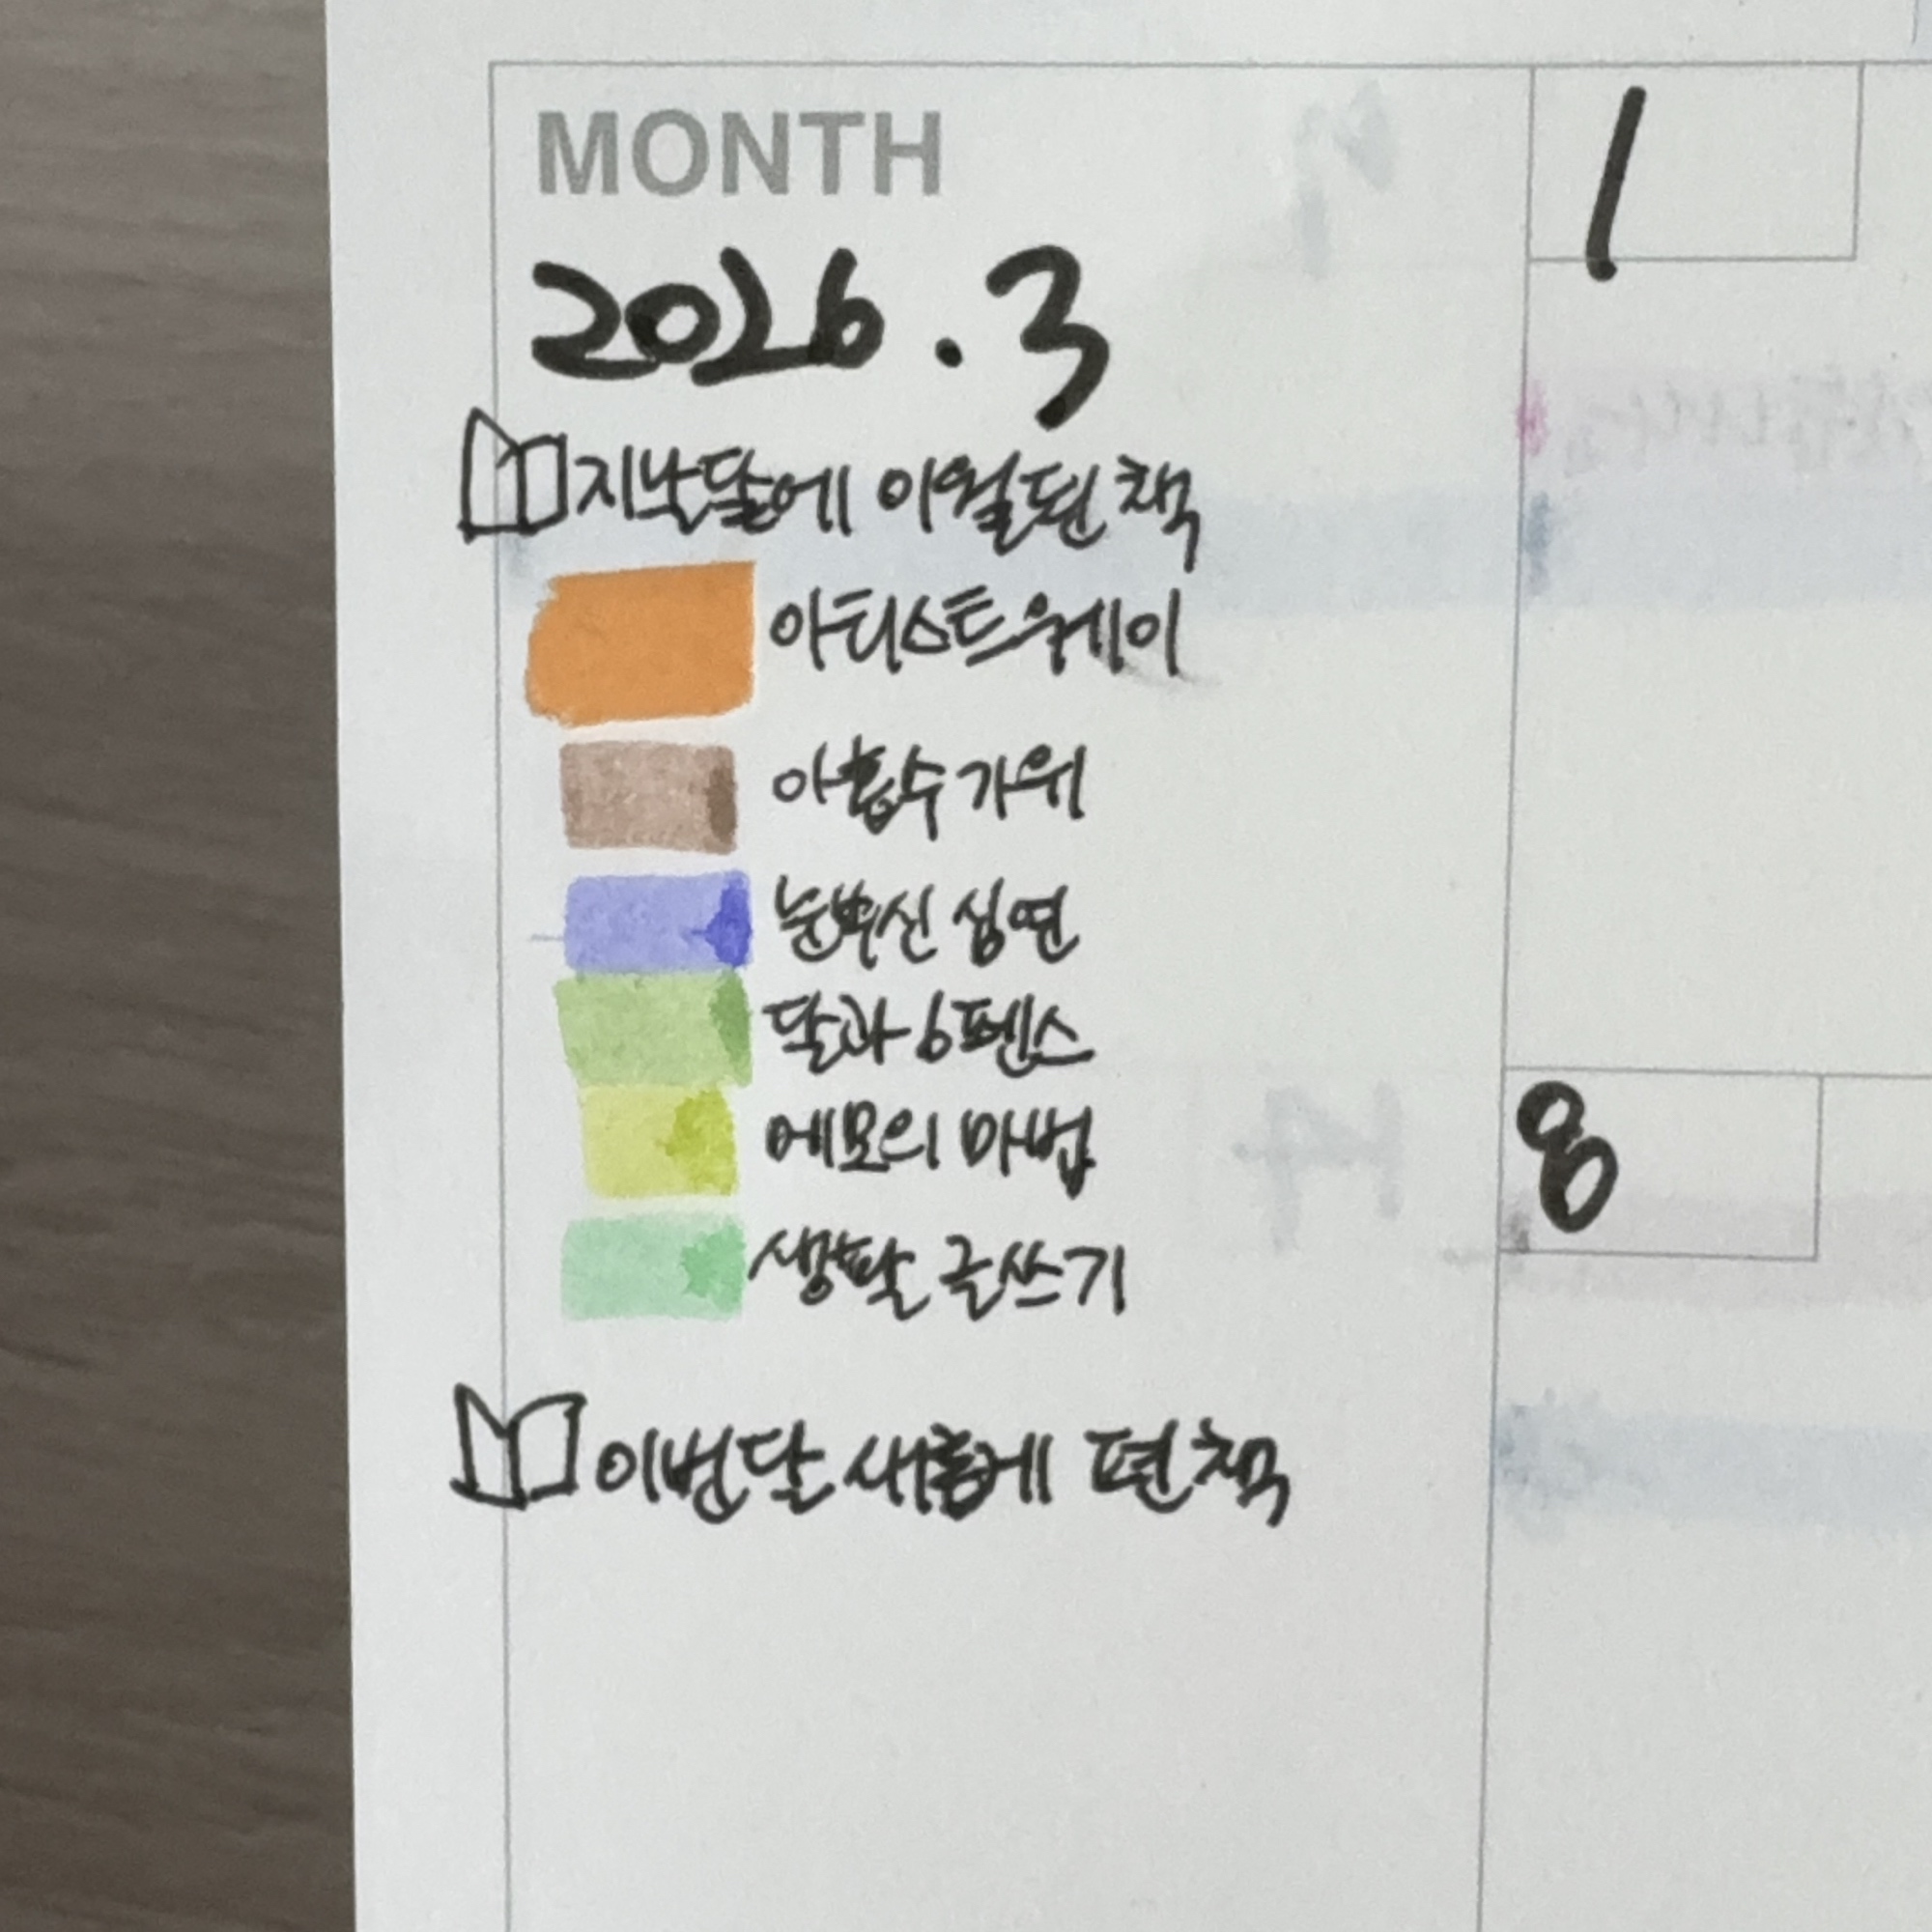 MONTH
2026.3
1
지난달에 이월된 책
아티스트웨이
아홉수 가위
눈부신 심연
달과 6펜스
에모의 마법
8
생활 글쓰기
이번달 새롭게 편 책